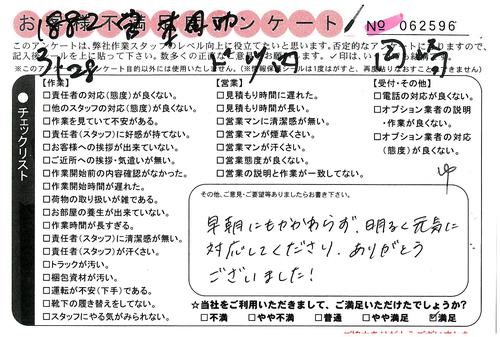 お客様不満足度アンケート No 062596
このアンケートは、弊社作業スタッフのレベル向上に役立てたいと思います。否定的なアンケートになりますので、
【作業】
□責任者の対応（態度）が良くない。
□他のスタッフの対応（態度）が良くない。
□作業を見ていて不安がある。
□責任者（スタッフ）に好感が持てない。
□お客様への挨拶が出来ていない。
□ご近所への挨拶・気遣いが無い。
□作業開始前の内容確認がなかった。
□作業開始時間が遅れた。
□荷物の取り扱いが雑である。
□お部屋の養生が出来ていない。
□作業時間が長すぎる。
□責任者（スタッフ）に清潔感が無い。
□責任者（スタッフ）が汗くさい。
□トラックが汚い。
□梱包資材が汚い。
□運転が不安（下手）である。
□靴下の履き替えをしてない。
□スタッフにやる気がみられない。
【営業】
□見積もり時間に遅れた。
□見積もり時間が長い。
□営業マンに清潔感が無い。
□営業マンが煙草くさい。
□営業マンが汗くさい。
□営業態度が良くない。
□営業の説明と作業が一致してない。
【受付・その他】
□電話の対応が良くない。
□オプション業者の説明
・作業が良くない。
□オプション業者の対応
（態度）が良くない。
チェックリスト
その他、ご意見・ご要望等ありましたらお書き下さい。
早朝にもかかわらず、明るく元気に
対応してくださり、ありがとう
ございました!
☆当社をご利用いただきまして、ご満足いただけでしょうか?
□不満 □やや不満 □普通 □やや満足 ☑満足